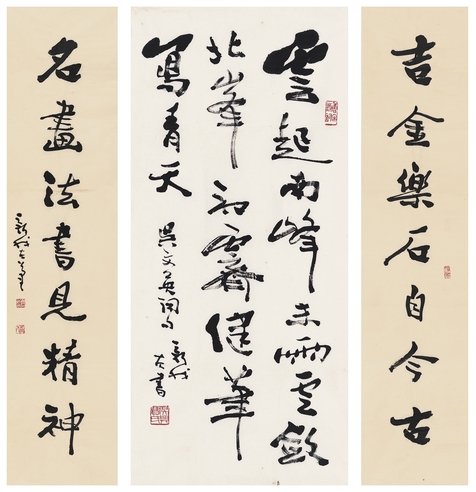 吉金樂石自今古
雲起南峰未雨雲斂
北峯初霽健筆
寫青天
吳文英詞句
新我
左書
名畫法書見精神
新我左